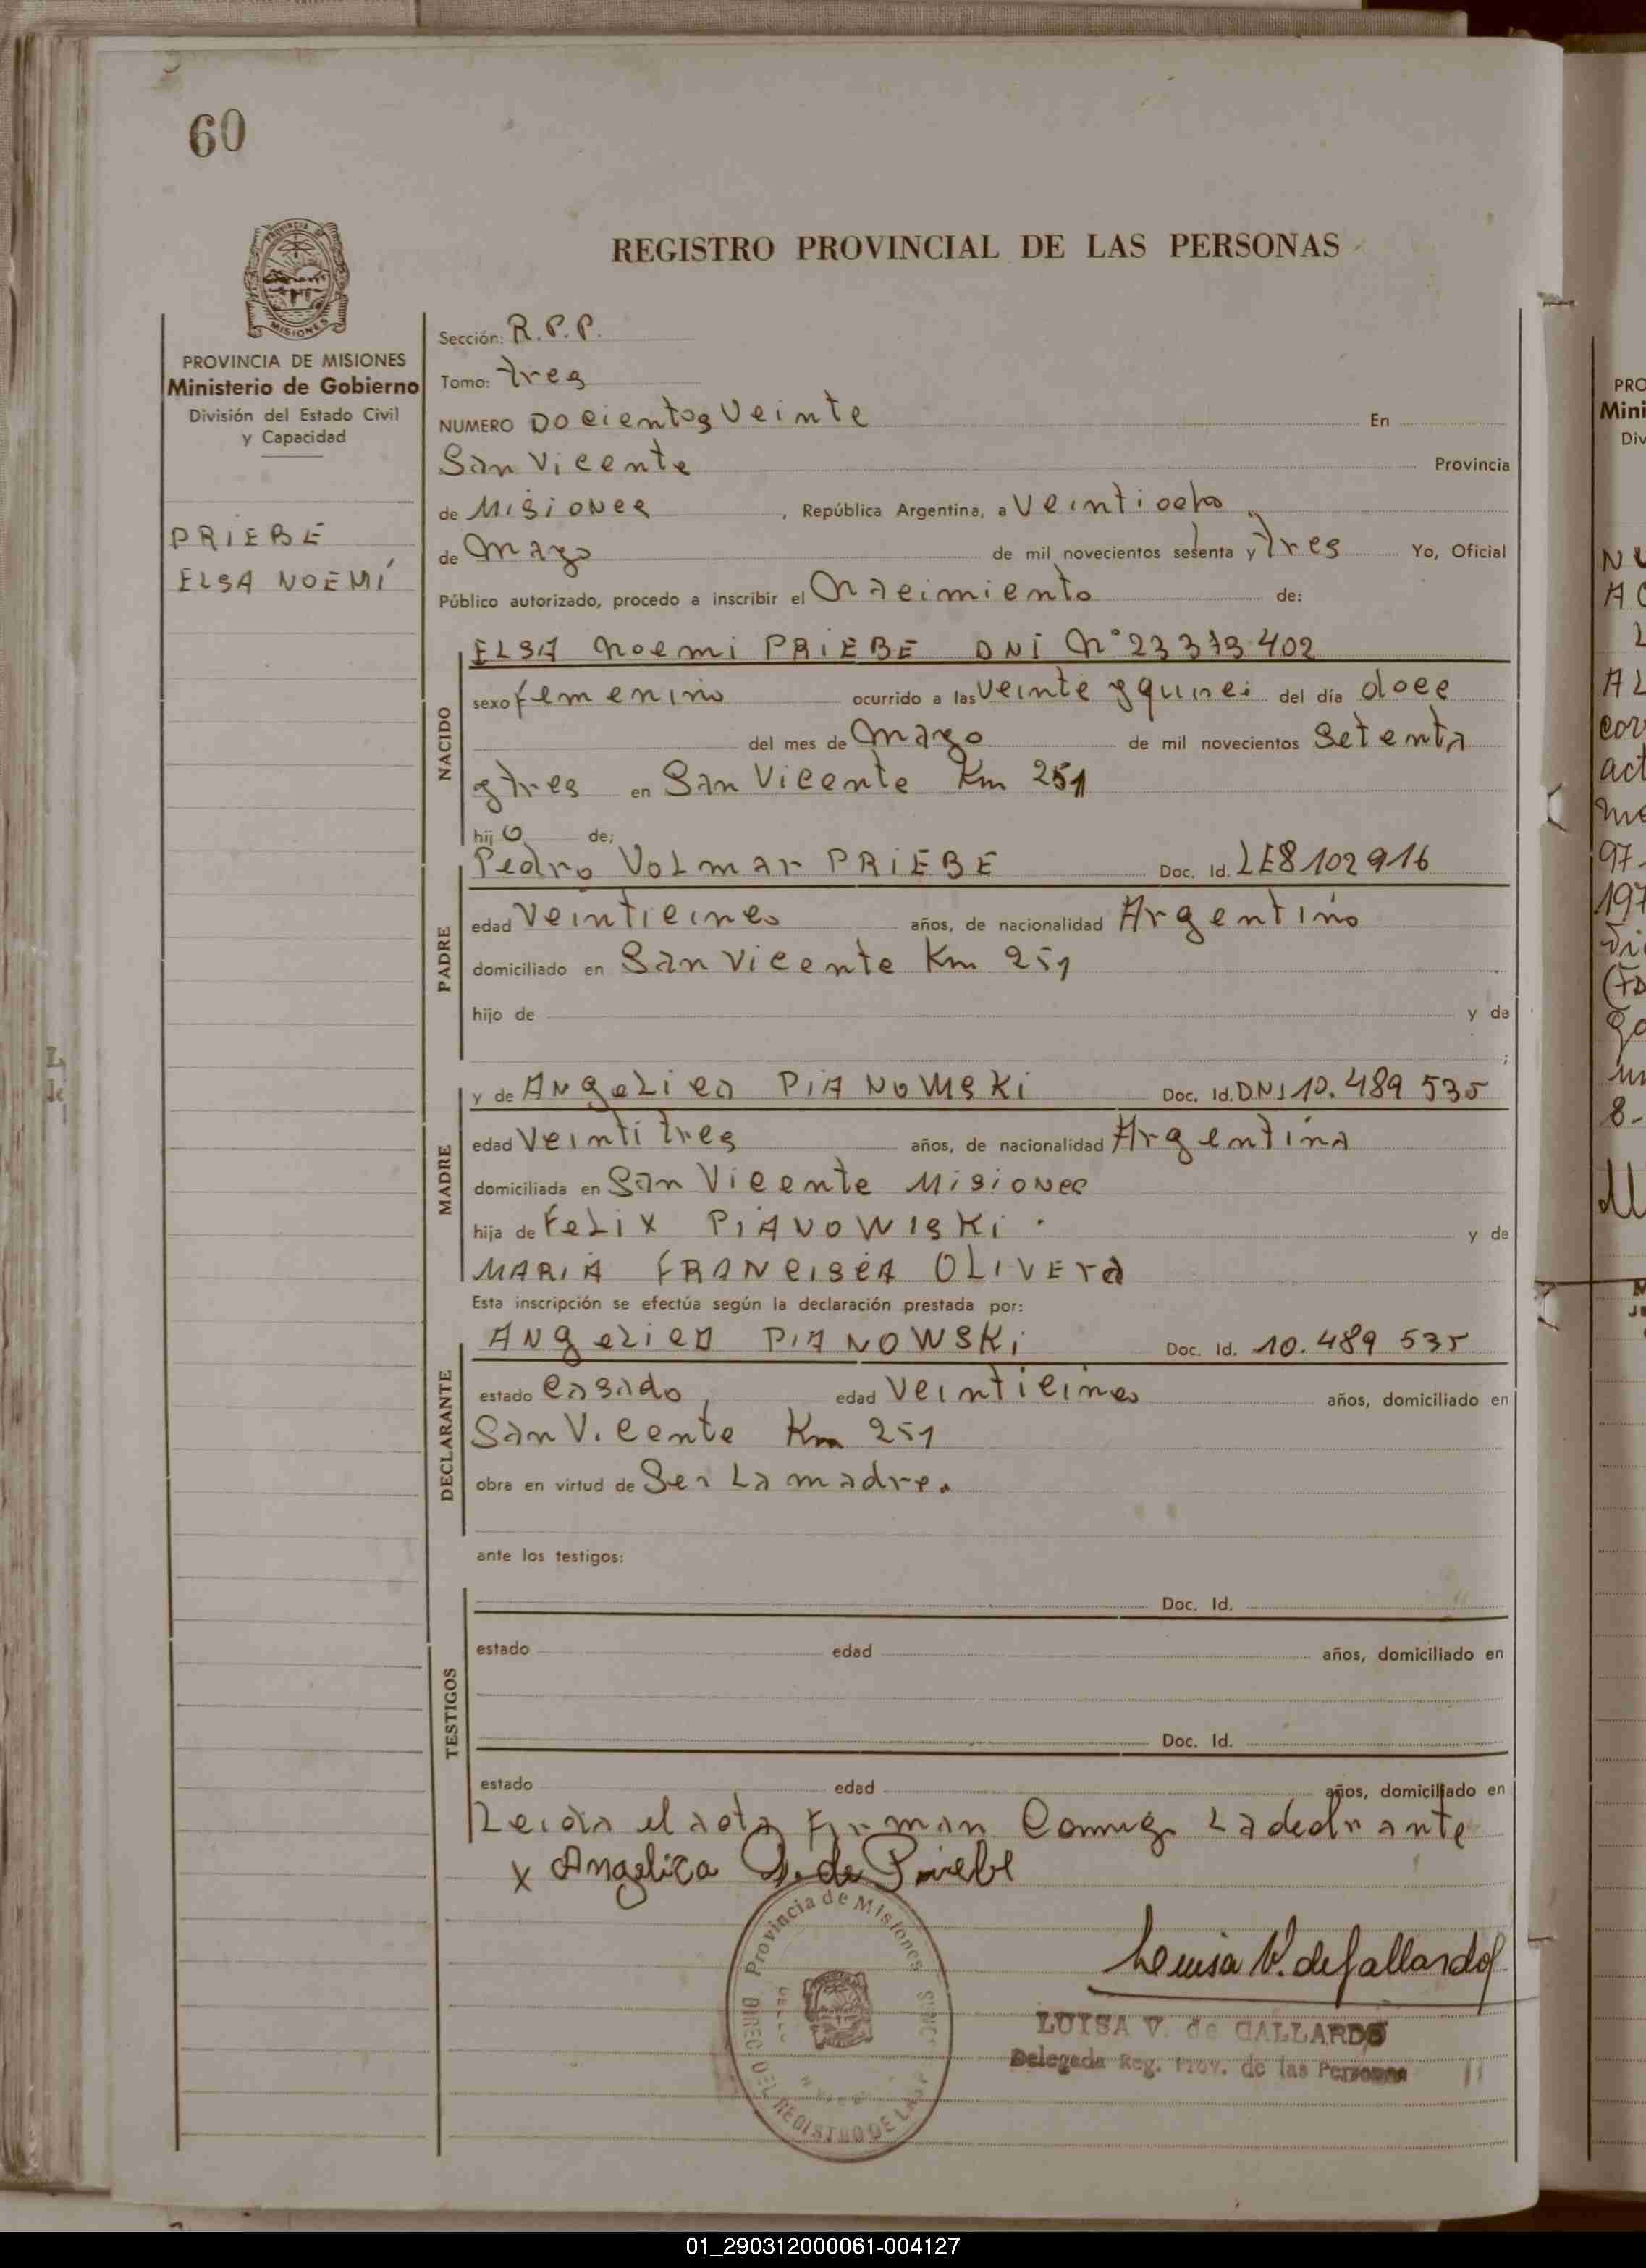 60
REGISTRO PROVINCIAL DE LAS PERSONAS
MISIONES
PROVINCIA DE MISIONES
Ministerio de Gobierno
División del Estado Civil
y Capacidad
PRIEBE
ELSA NOEMÍ
Sección: R.P.P.
Tomo: tres
NUMERO Docientos Veinte En
San Vicente Provincia
de Misiones, República Argentina, a Veintiocho
de Marzo de mil novecientos setenta y tres Yo, Oficial
Público autorizado, procedo a inscribir el Nacimiento de:
NACIDO
ELSA Noemi PRIEBE DNI N° 23 373 402
sexo femenino ocurrido a las veinte y quince del día doce
del mes de Marzo de mil novecientos Setenta
y tres en San Vicente Km 251
hijo de:
PADRE
Pedro VOLMAR PRIEBE Doc. Id. LE 8102916
edad Veinticinco años, de nacionalidad Argentino
domiciliado en San Vicente Km 251
hijo de y de
;
MADRE
y de ANgeLica PIANOWSKi Doc. Id. DNI 10.489 535
edad Veintitres años, de nacionalidad Argentina
domiciliada en San Vicente Misiones
hija de FeLix PiANOWISKi y de
MARIA FRANCISCA OLIVERA
Esta inscripción se efectúa según la declaración prestada por:
DECLARANTE
ANgelica PIANOWSKi Doc. Id. 10.489 535
estado Casado, edad Veinticinco años, domiciliado en
San Vicente Km 251
obra en virtud de Ser La madre.
ante los testigos:
TESTIGOS
Doc. Id.
estado edad años, domiciliado en
Doc. Id.
estado edad años, domiciliado en
Leida el acta Firman Conmigo La declarante
x Angelica P. de Priebe
Provincia de Misiones
DIREC. DEL REGISTRO DE LAS
Luisa V. de Gallardo
LUISA V. de GALLARDO
Delegada Reg. Prov. de las Personas
PRO
Mini
Div
01_290312000061-004127